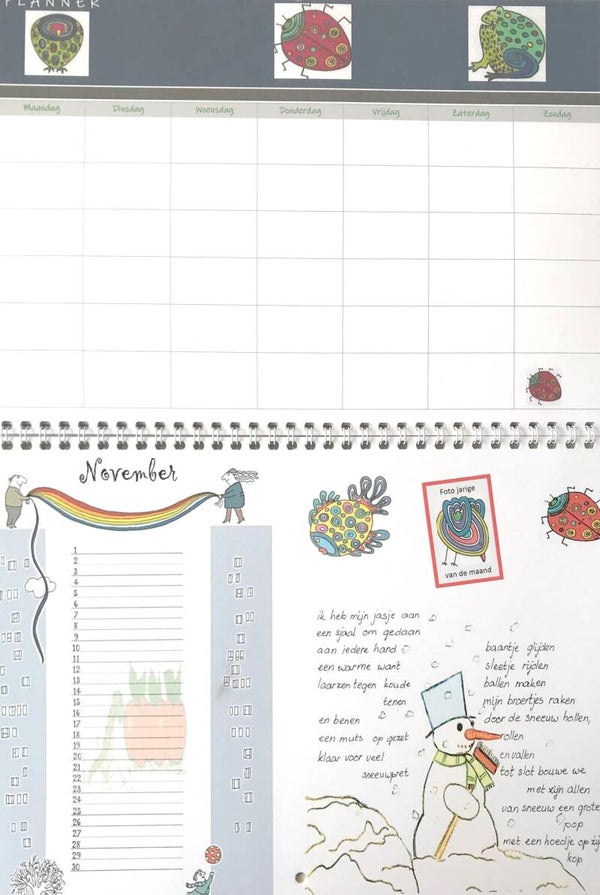 PLANNER
Maandag Dinsdag Woensdag Donderdag Vrijdag Zaterdag Zondag
November
1
2
3
4
5
6
7
8
9
10
11
12
13
14
15
16
17
18
19
20
21
22
23
24
25
26
27
28
29
30
Foto jarige
van de maand
ik heb mijn jasje aan
een sjaal om gedaan
aan iedere hand
een warme want
laarzen tegen koude
tenen
en benen
een muts op gezet
klaar voor veel
sneeuwpret
baantje glijden
sleetje rijden
ballen maken
mijn broertjes raken
door de sneeuw hollen,
rollen
en vallen
tot slot bouwe we
met zijn allen
van sneeuw een grote
pop
met een hoedje op zij
kop